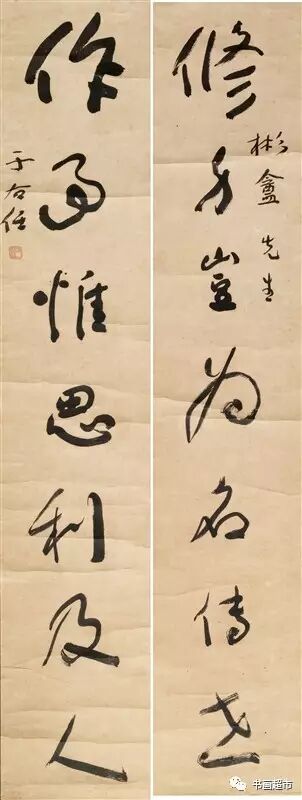 修身豈为名傳世
彬盦先生
作事惟思利及人
于右任
书画超市